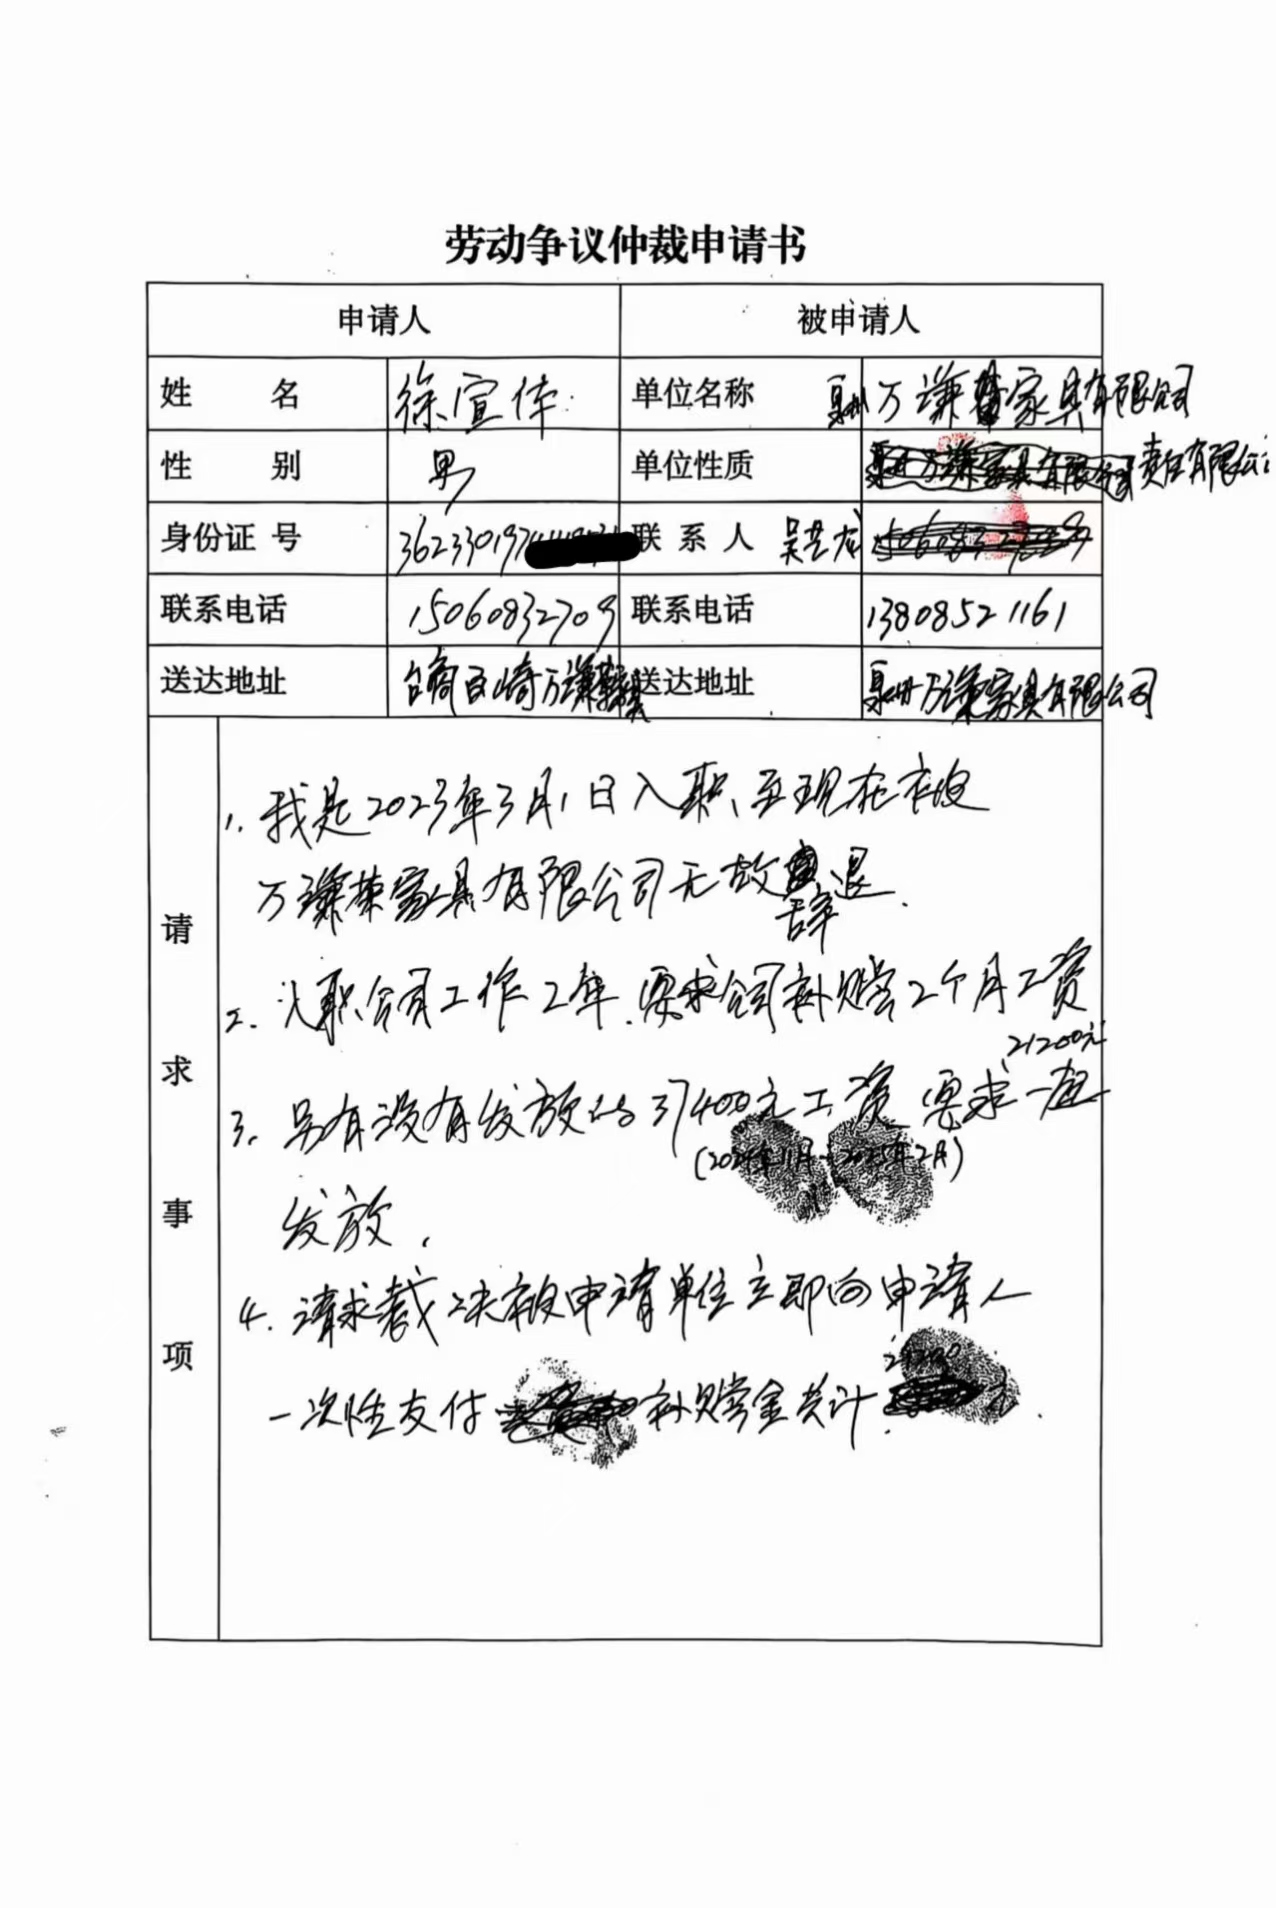 劳动争议仲裁申请书
申请人 被申请人
姓 名 徐宣伟 单位名称 泉州万谦 家具有限公司
性 别 男 单位性质 责任有限公司
身份证号 362330197 联系人 吴芝龙
联系电话 15060832709 联系电话 13808521161
送达地址 台商百崎万谦 送达地址 泉州万谦家具有限公司
请求事项
1. 我是2023年3月1日入职、至现在被
万谦荣家具有限公司无故辞退.
2. 入职公司工作2年.要求公司补赔偿2个月工资
21200元
3. 另有没有发放的37400元工资 要求一起
(2024年11月-2025年2月)
发放.
4. 请求裁决被申请单位立即向申请人
21200
一次性支付 补赔偿金共计 元.